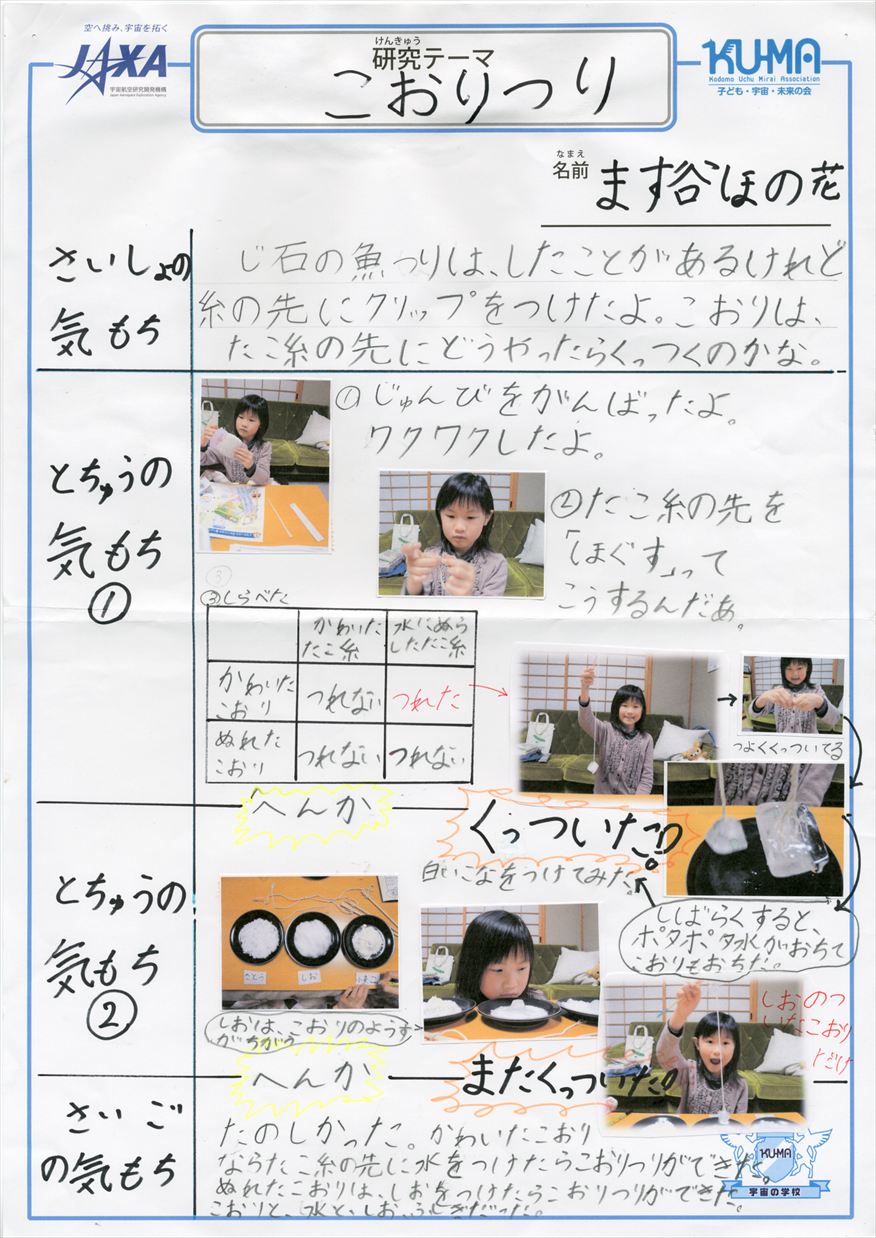 空へ挑み、宇宙を拓く
JAXA
宇宙航空研究開発機構
Japan Aerospace Exploration Agency
けんきゅう
研究テーマ
こおりつり
KU-MA
Kodomo Uchu Mirai Association
子ども・宇宙・未来の会
なまえ
名前 ます谷ほの花
さいしょの
気もち
じ石の魚つりは、したことがあるけれど
糸の先にクリップをつけたよ。こおりは、
たこ糸の先にどうやったらくっつくのかな。
とちゅうの
気もち
①
①じゅんびをがんばったよ。
ワクワクしたよ。
②たこ糸の先を
「ほぐす」って
こうするんだあ。
③
③しらべた
かわいた
たこ糸
水にぬら
したたこ糸
かわいた
こおり
つれない
つれた
ぬれた
こおり
つれない
つれない
つよくくっついてる
へんか
くっついた!!
とちゅうの
気もち
②
白いこなをつけてみた。
しばらくすると、
ポタポタ水がおちて
こおりもおちた。
さとう
しお
しおは、こおりのようす
がちがう
しおのつ
いたこおり
だけ
へんか
またくっついた!!
さいご
の気もち
たのしかった。かわいたこおり
ならたこ糸の先に水をつけたらこおりつりができた。
ぬれたこおりは、しおをつけたらこおりつりができた。
こおりと、水と、しお、ふしぎだった。
KU-MA
宇宙の学校